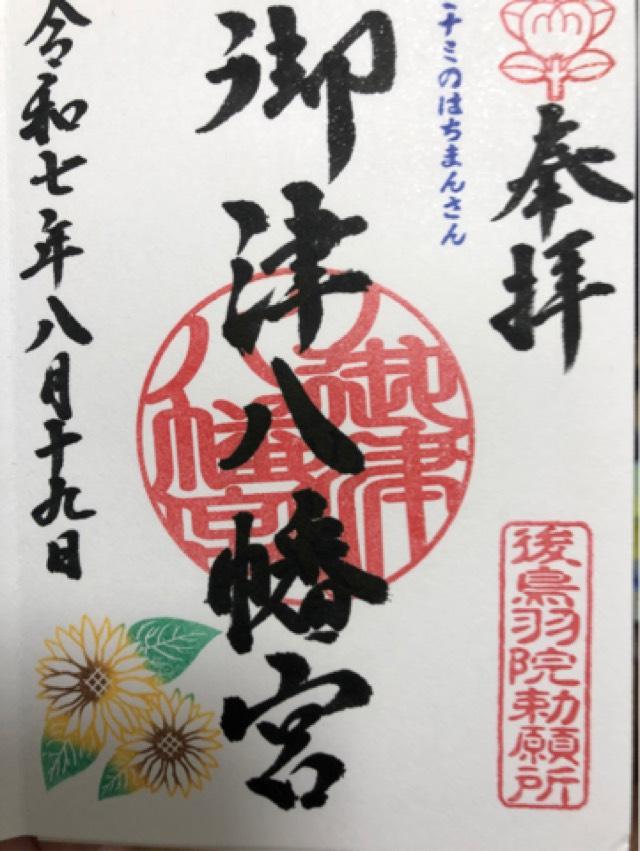 奉拝
後鳥羽院勅願所
ナミのはちまんさん
御津八幡宮
御津八幡宮
令和七年八月十九日